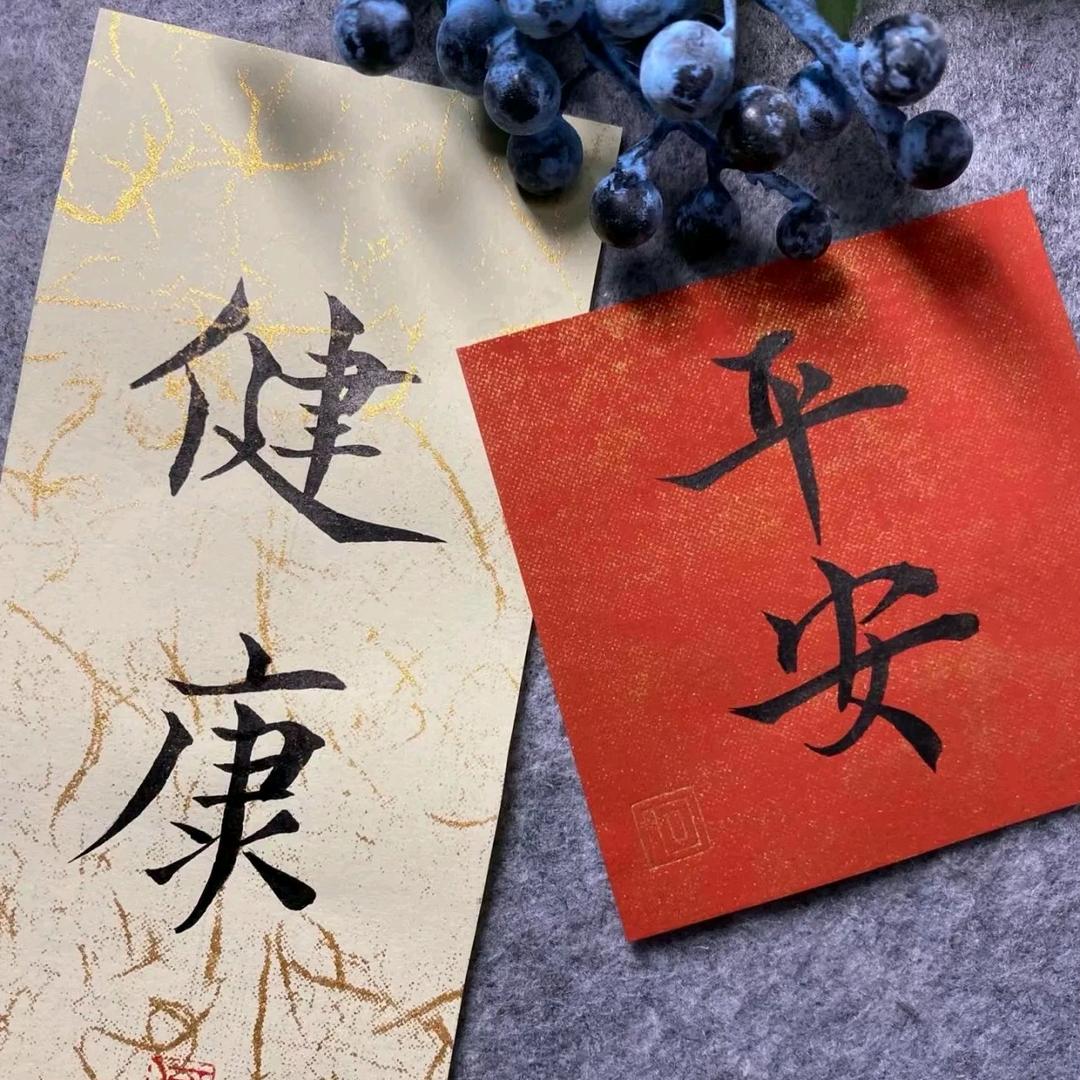 健康
平安